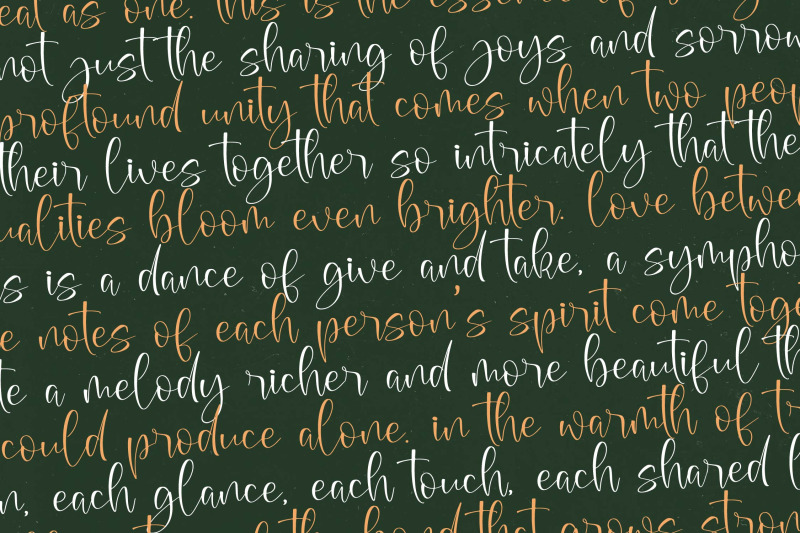 eat as one. this is the essence of
not just the sharing of joys and sorrow
profound unity that comes when two peop
their lives together so intricately that the
ualities bloom even brighter. love betwee
s is a dance of give and take, a sympho
e notes of each person's spirit come toge
te a melody richer and more beautiful th
could produce alone. in the warmth of tr
n, each glance, each touch, each shared l
bond that grows stron